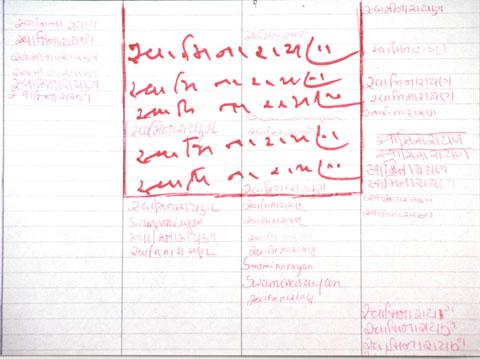 સ્વામિનારાયણ
સ્વામિનારાયણ
સ્વામિનારાયણ
સ્વામિનારાયણ
સ્વામિનારાયણ
સ્વામિનારાયણ
સ્વામિ નારાયણ
સ્વામિ નારાયણ
સ્વામિ નારાયણ
સ્વામિનારાયણ
સ્વામિ નારાયણ
સ્વામિ નારાયણ
સ્વામિનારાયણ
Swaminarayan
સ્વામિનારાયણ
સ્વામિનારાયણ
સ્વામિનારાયણ
સ્વામિનારાયણ
સ્વામિનારાયણ
સ્વામિનારાયણ
સ્વામિનારાયણ
Swaminarayan
Swaminarayan
સ્વામિનારાયણ
સ્વામિનારાયણ
સ્વામિનારાયણ
સ્વામિનારાયણ
સ્વામિનારાયણ
સ્વામિનારાયણ
स्वामिनारायण
स्वामिनारायण
स्वामिनारायण
स्वामिनारायण
સ્વામિનારાયણ
સ્વામિનારાયણ
સ્વામિનારાયણ
સ્વામિનારાયણ
સ્વામિનારાયણ